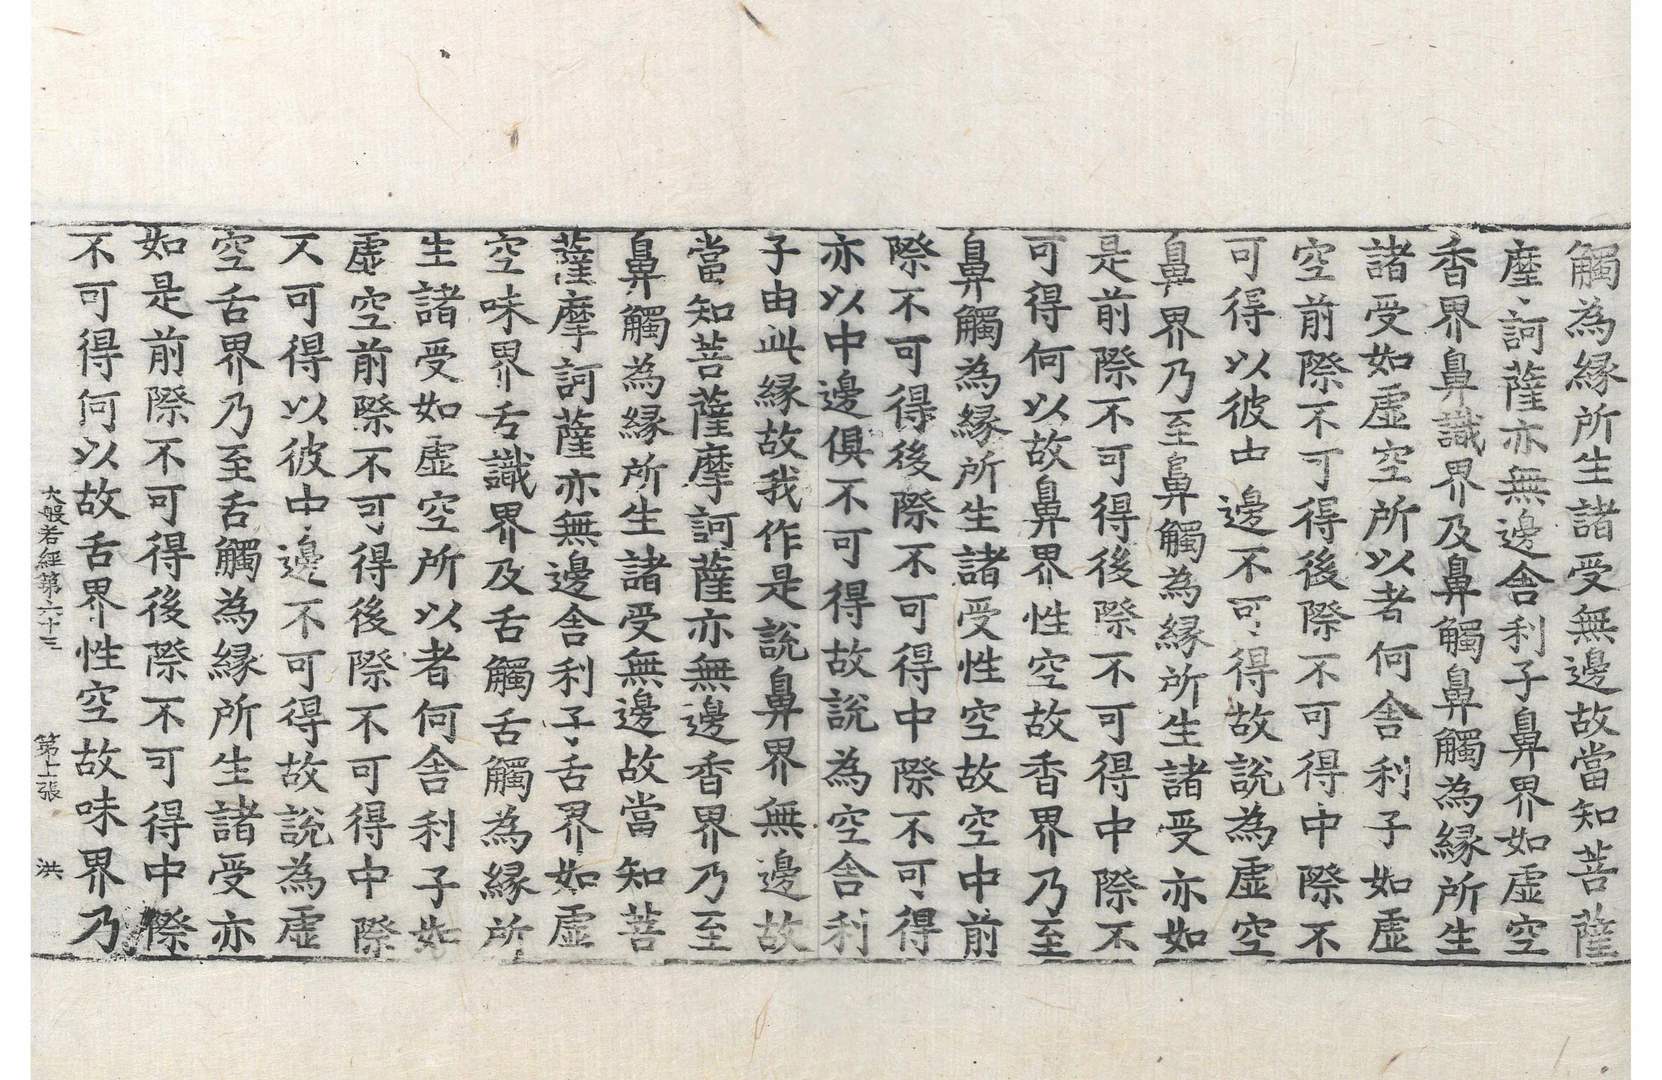 觸為縁所生諸受無邊故當知菩薩
摩訶薩亦無邊舎利子鼻界如虚空
香界鼻識界及鼻觸鼻觸為縁所生
諸受如虚空所以者何舎利子如虚
空前際不可得後際不可得中際不
可得以彼中邊不可得故說為虚空
鼻界乃至鼻觸為縁所生諸受亦如
是前際不可得後際不可得中際不
可得何以故鼻界性空故香界乃至
鼻觸為縁所生諸受性空故空中前
際不可得後際不可得中際不可得
亦以中邊俱不可得故說為空舎利
子由此縁故我作是說鼻界無邊故
當知菩薩摩訶薩亦無邊香界乃至
鼻觸為縁所生諸受無邊故當知菩
薩摩訶薩亦無邊舎利子舌界如虚
空味界舌識界及舌觸舌觸為縁所
生諸受如虚空所以者何舎利子如
虚空前際不可得後際不可得中際
不可得以彼中邊不可得故說為虚
空舌界乃至舌觸為縁所生諸受亦
如是前際不可得後際不可得中際
不可得何以故舌界性空故味界乃
大般若經第六十三 第上張 洪